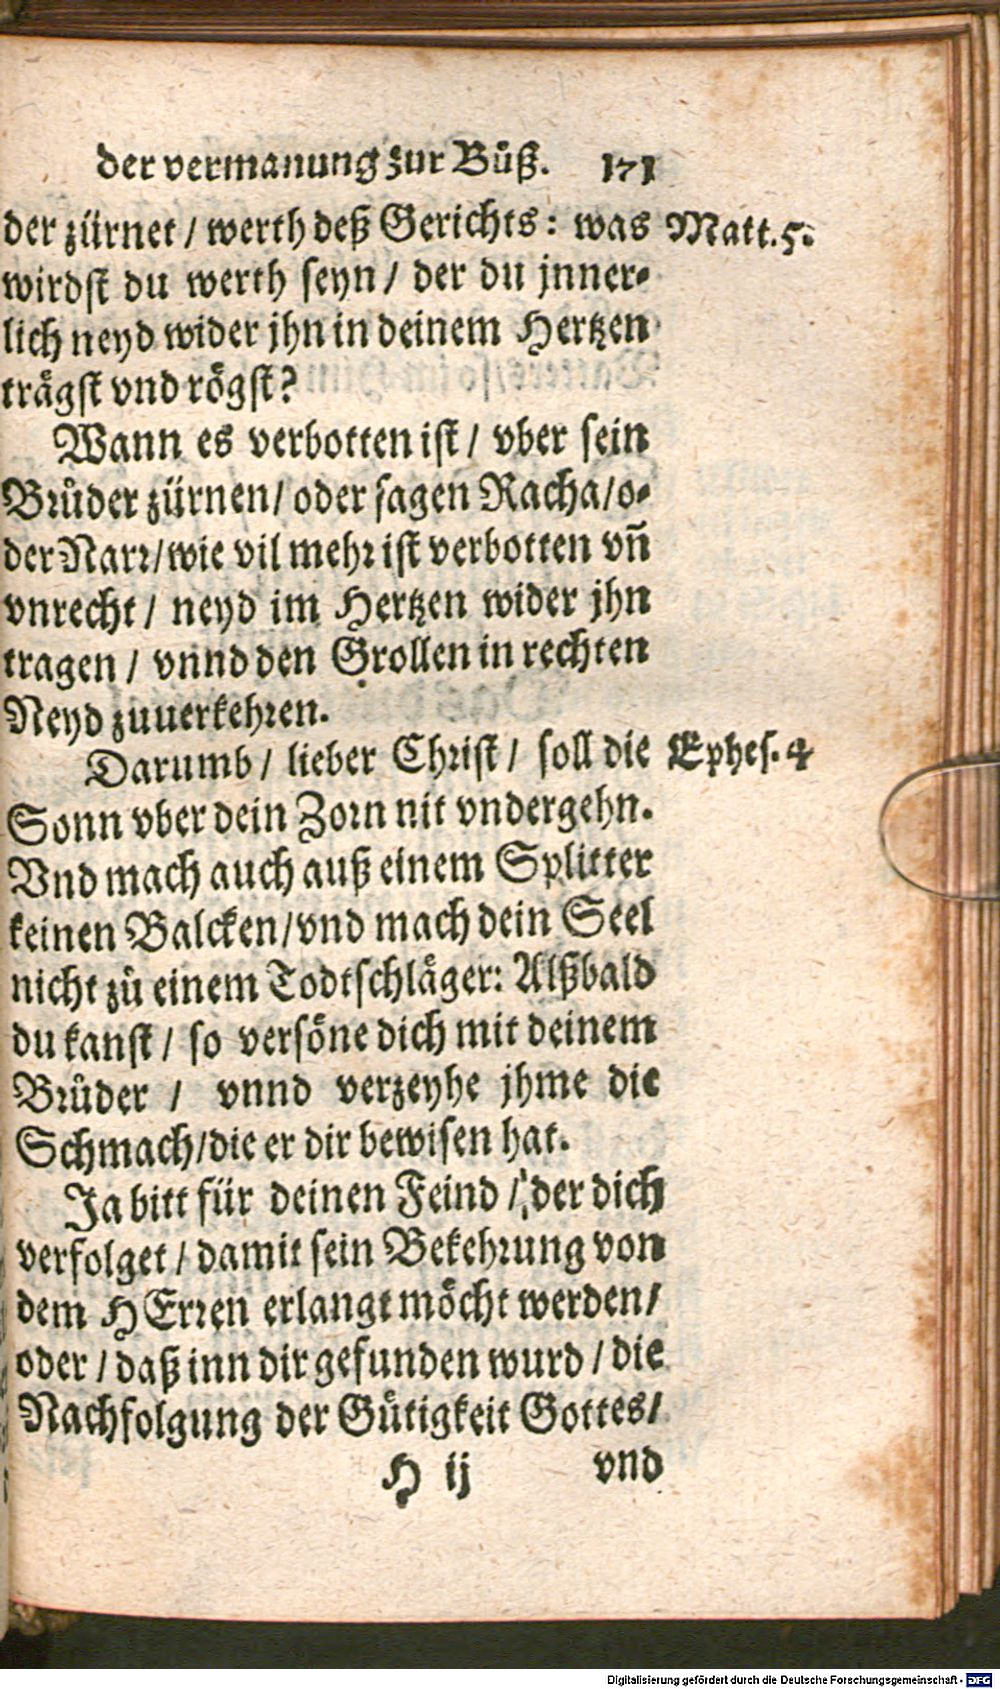 der vermanung zur Bůß. 171
der zürnet / werth deß Gerichts: was Matt. 5.
wirdst du werth seyn / der du jnner-
lich neyd wider jhn in deinem Hertzen
trägst vnd rögst?
Wann es verbotten ist / vber sein
Brůder zürnen / oder sagen Racha / o-
der Narr / wie vil mehr ist verbotten vn̄
vnrecht / neyd im Hertzen wider jhn
tragen / vnnd den Grollen in rechten
Neyd zuuerkehren.
Darumb / lieber Christ / soll die Ephes. 4
Sonn vber dein Zorn nit vndergehn.
Vnd mach auch auß einem Splitter
keinen Balcken / vnd mach dein Seel
nicht zů einem Todtschläger: Alßbald
du kanst / so versöne dich mit deinem
Brůder / vnnd verzeyhe jhme die
Schmach / die er dir bewisen hat.
Ja bitt für deinen Feind / der dich
verfolget / damit sein Bekehrung von
dem HErren erlangt möcht werden /
oder / daß inn dir gefunden wurd / die
Nachfolgung der Gütigkeit Gottes /
H ij vnd
Digitalisierung gefördert durch die Deutsche Forschungsgemeinschaft - DFG